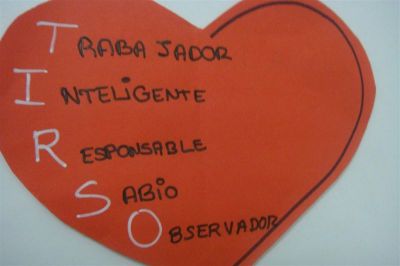 TRABAJADOR
INTELIGENTE
RESPONSABLE
SABIO
OBSERVADOR